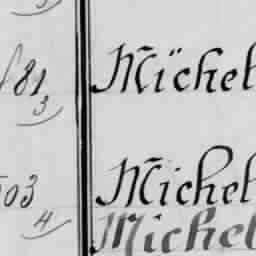 81 Michel
3
503 Michel
4 Michel